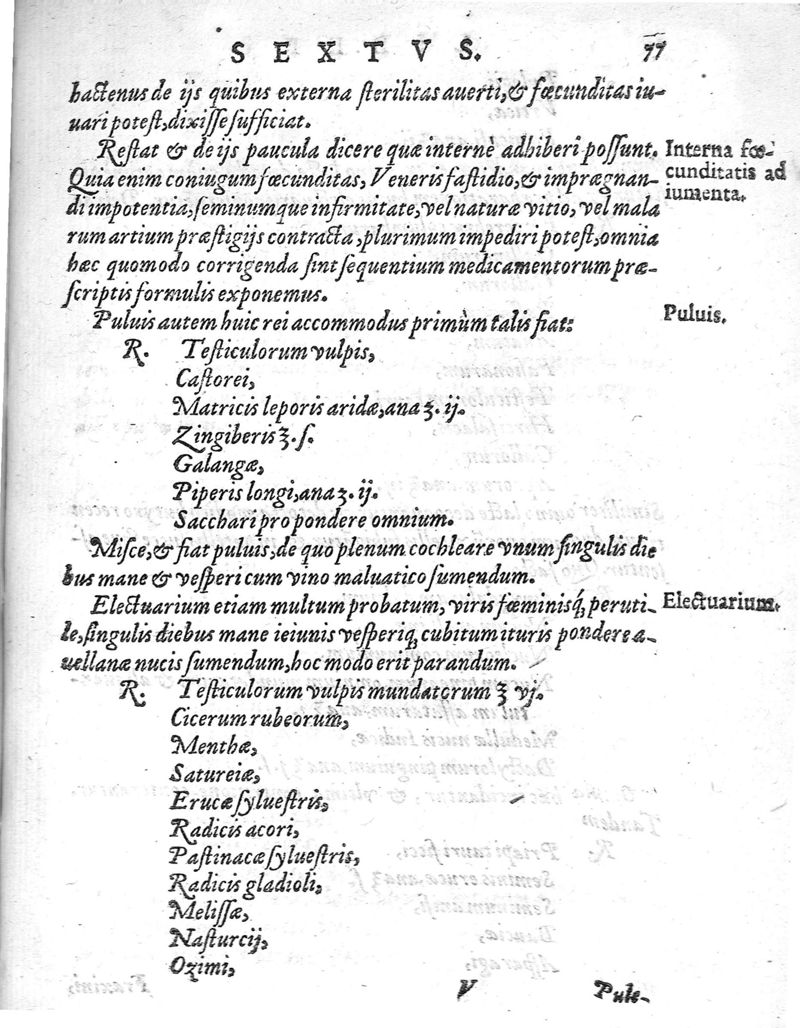 SEXTVS. 77
hactenus de ijs quibus externa sterilitas auerti, & fœcunditas iu-
uari potest, dixisse sufficiat.
Restat & de ijs paucula dicere quæ internè adhiberi possunt.
Interna fœ-
cunditatis ad
iumenta.
Quia enim coniugum fœcunditas, Veneris fastidio, & imprægnan-
di impotentia, seminumque infirmitate, vel naturæ vitio, vel mala
rum artium præstigijs contracta, plurimum impediri potest, omnia
hæc quomodo corrigenda sint sequentium medicamentorum præ-
scriptis formulis exponemus.
Puluis autem huic rei accommodus primùm talis fiat:
Puluis.
R. Testiculorum vulpis,
Castorei,
Matricis leporis aridæ, ana ʒ. ij.
Zingiberis ʒ. ſ.
Galangæ,
Piperis longi, ana ʒ. ij.
Sacchari pro pondere omnium.
Misce, & fiat puluis, de quo plenum cochleare vnum singulis die
bus mane & vesperi cum vino maluatico sumendum.
Electuarium etiam multum probatum, viris fœminisq́; peruti-
Electuarium.
le, singulis diebus mane ieiunis vesperiq; cubitum ituris pondere a-
uellanæ nucis sumendum, hoc modo erit parandum.
R. Testiculorum vulpis mundatorum ʒ vj.
Cicerum rubeorum,
Menthæ,
Satureiæ,
Erucæ syluestris,
Radicis acori,
Pastinacæ syluestris,
Radicis gladioli,
Melissæ,
Nasturcij,
Ozimi,
V Pule-